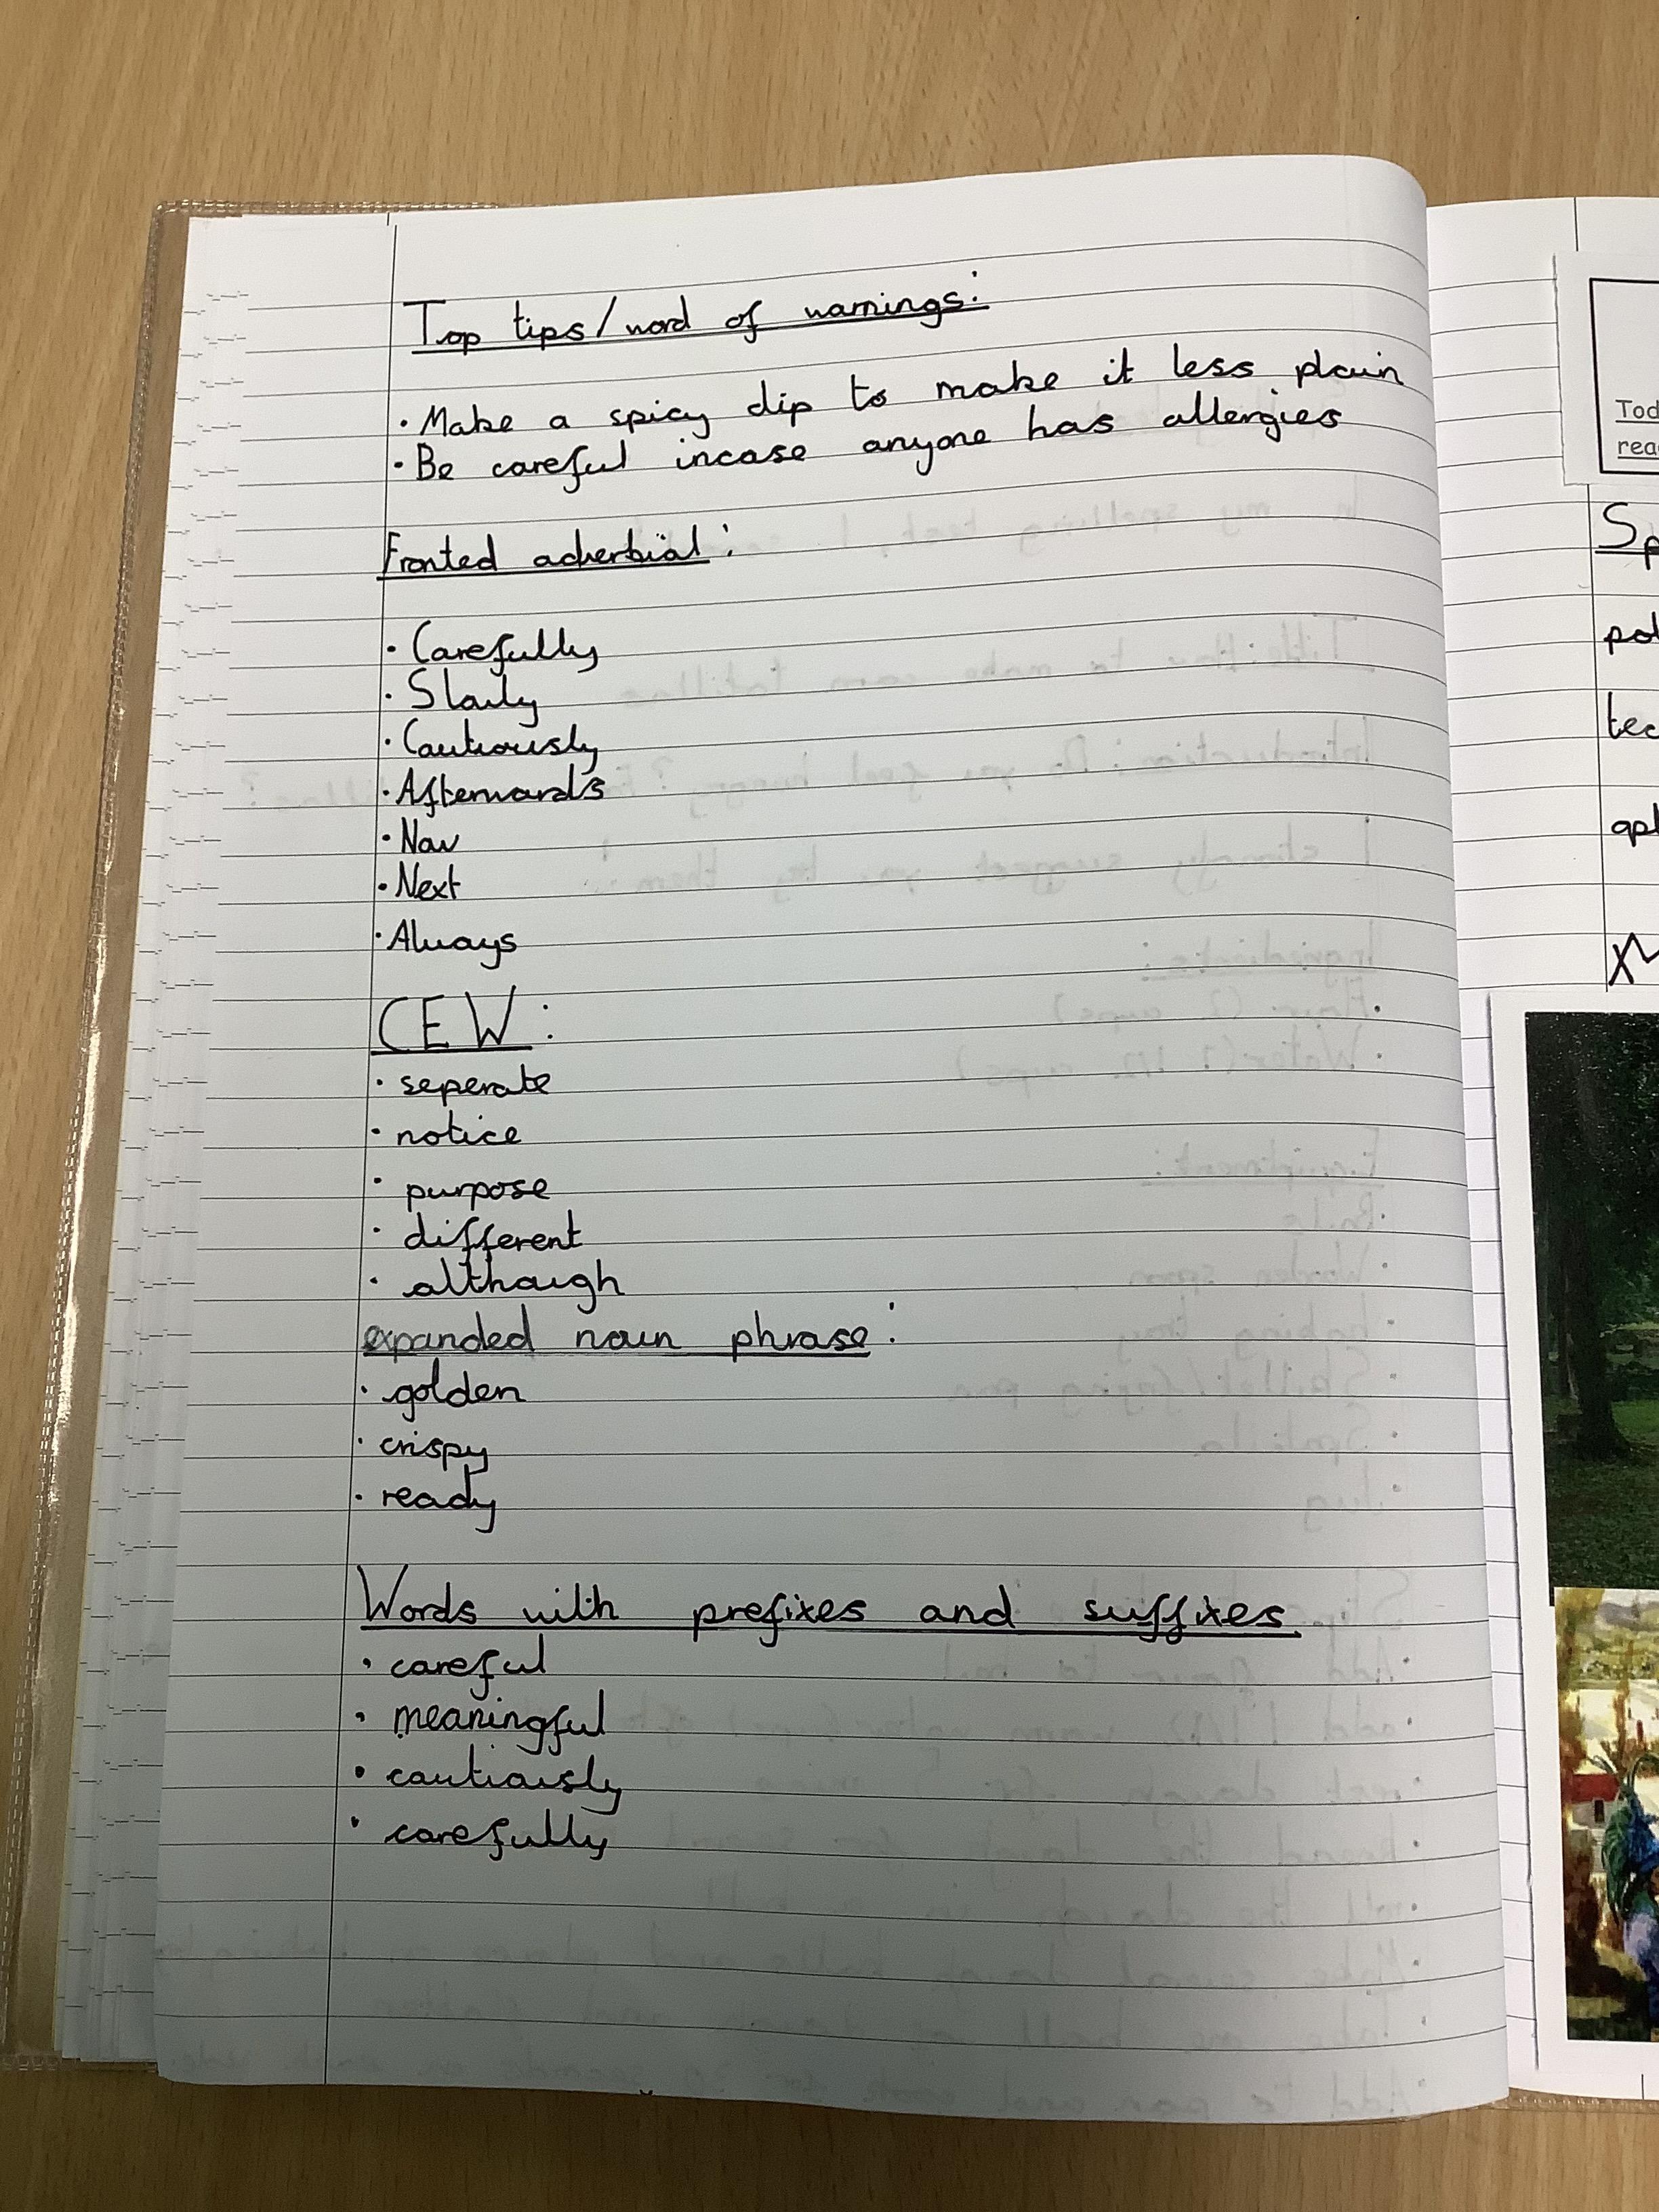 Top tips/word of warnings:
• Make a spicy dip to make it less plain
• Be careful incase anyone has allergies
Fronted adverbial:
• Carefully
• Slowly
• Cautiously
• Afterwards
• Now
• Next
• Always
CEW:
• seperate
• notice
• purpose
• different
• although
expanded noun phrase:
• golden
• crispy
• ready
Words with prefixes and suffixes.
• careful
• meaningful
• cautiously
• carefully
Tod
rea
Sp